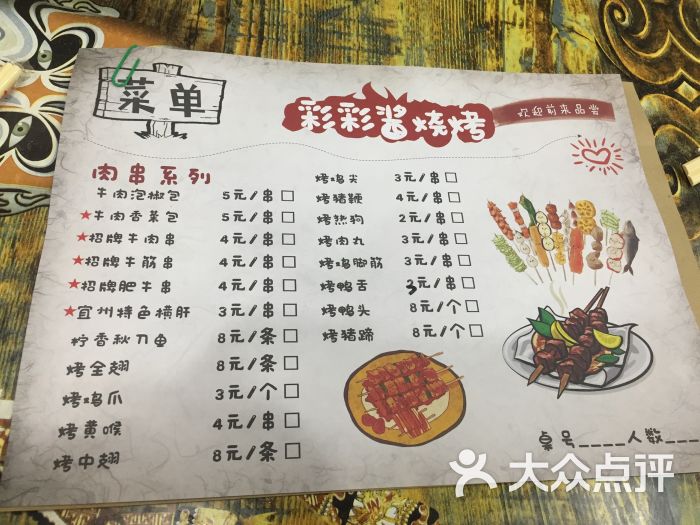 菜单
彩彩酱烧烤
欢迎前来品尝
肉串系列
牛肉泡椒包 5元/串□
★牛肉香菜包 5元/串□
★招牌牛肉串 4元/串□
★招牌牛筋串 4元/串□
★招牌肥牛串 4元/串□
★宜州特色横肝 3元/串□
柠香秋刀鱼 8元/条□
烤全翅 8元/条□
烤鸡爪 3元/个□
烤黄喉 4元/串□
烤中翅 8元/条□
烤鸡尖 3元/串□
烤猪鞭 4元/串□
烤热狗 2元/串□
烤肉丸 3元/串□
烤鸡脚筋 3元/串□
烤鸭舌 3元/串□
烤鸭头 8元/个□
烤猪蹄 8元/个□
桌号_____人数_____
大众点评